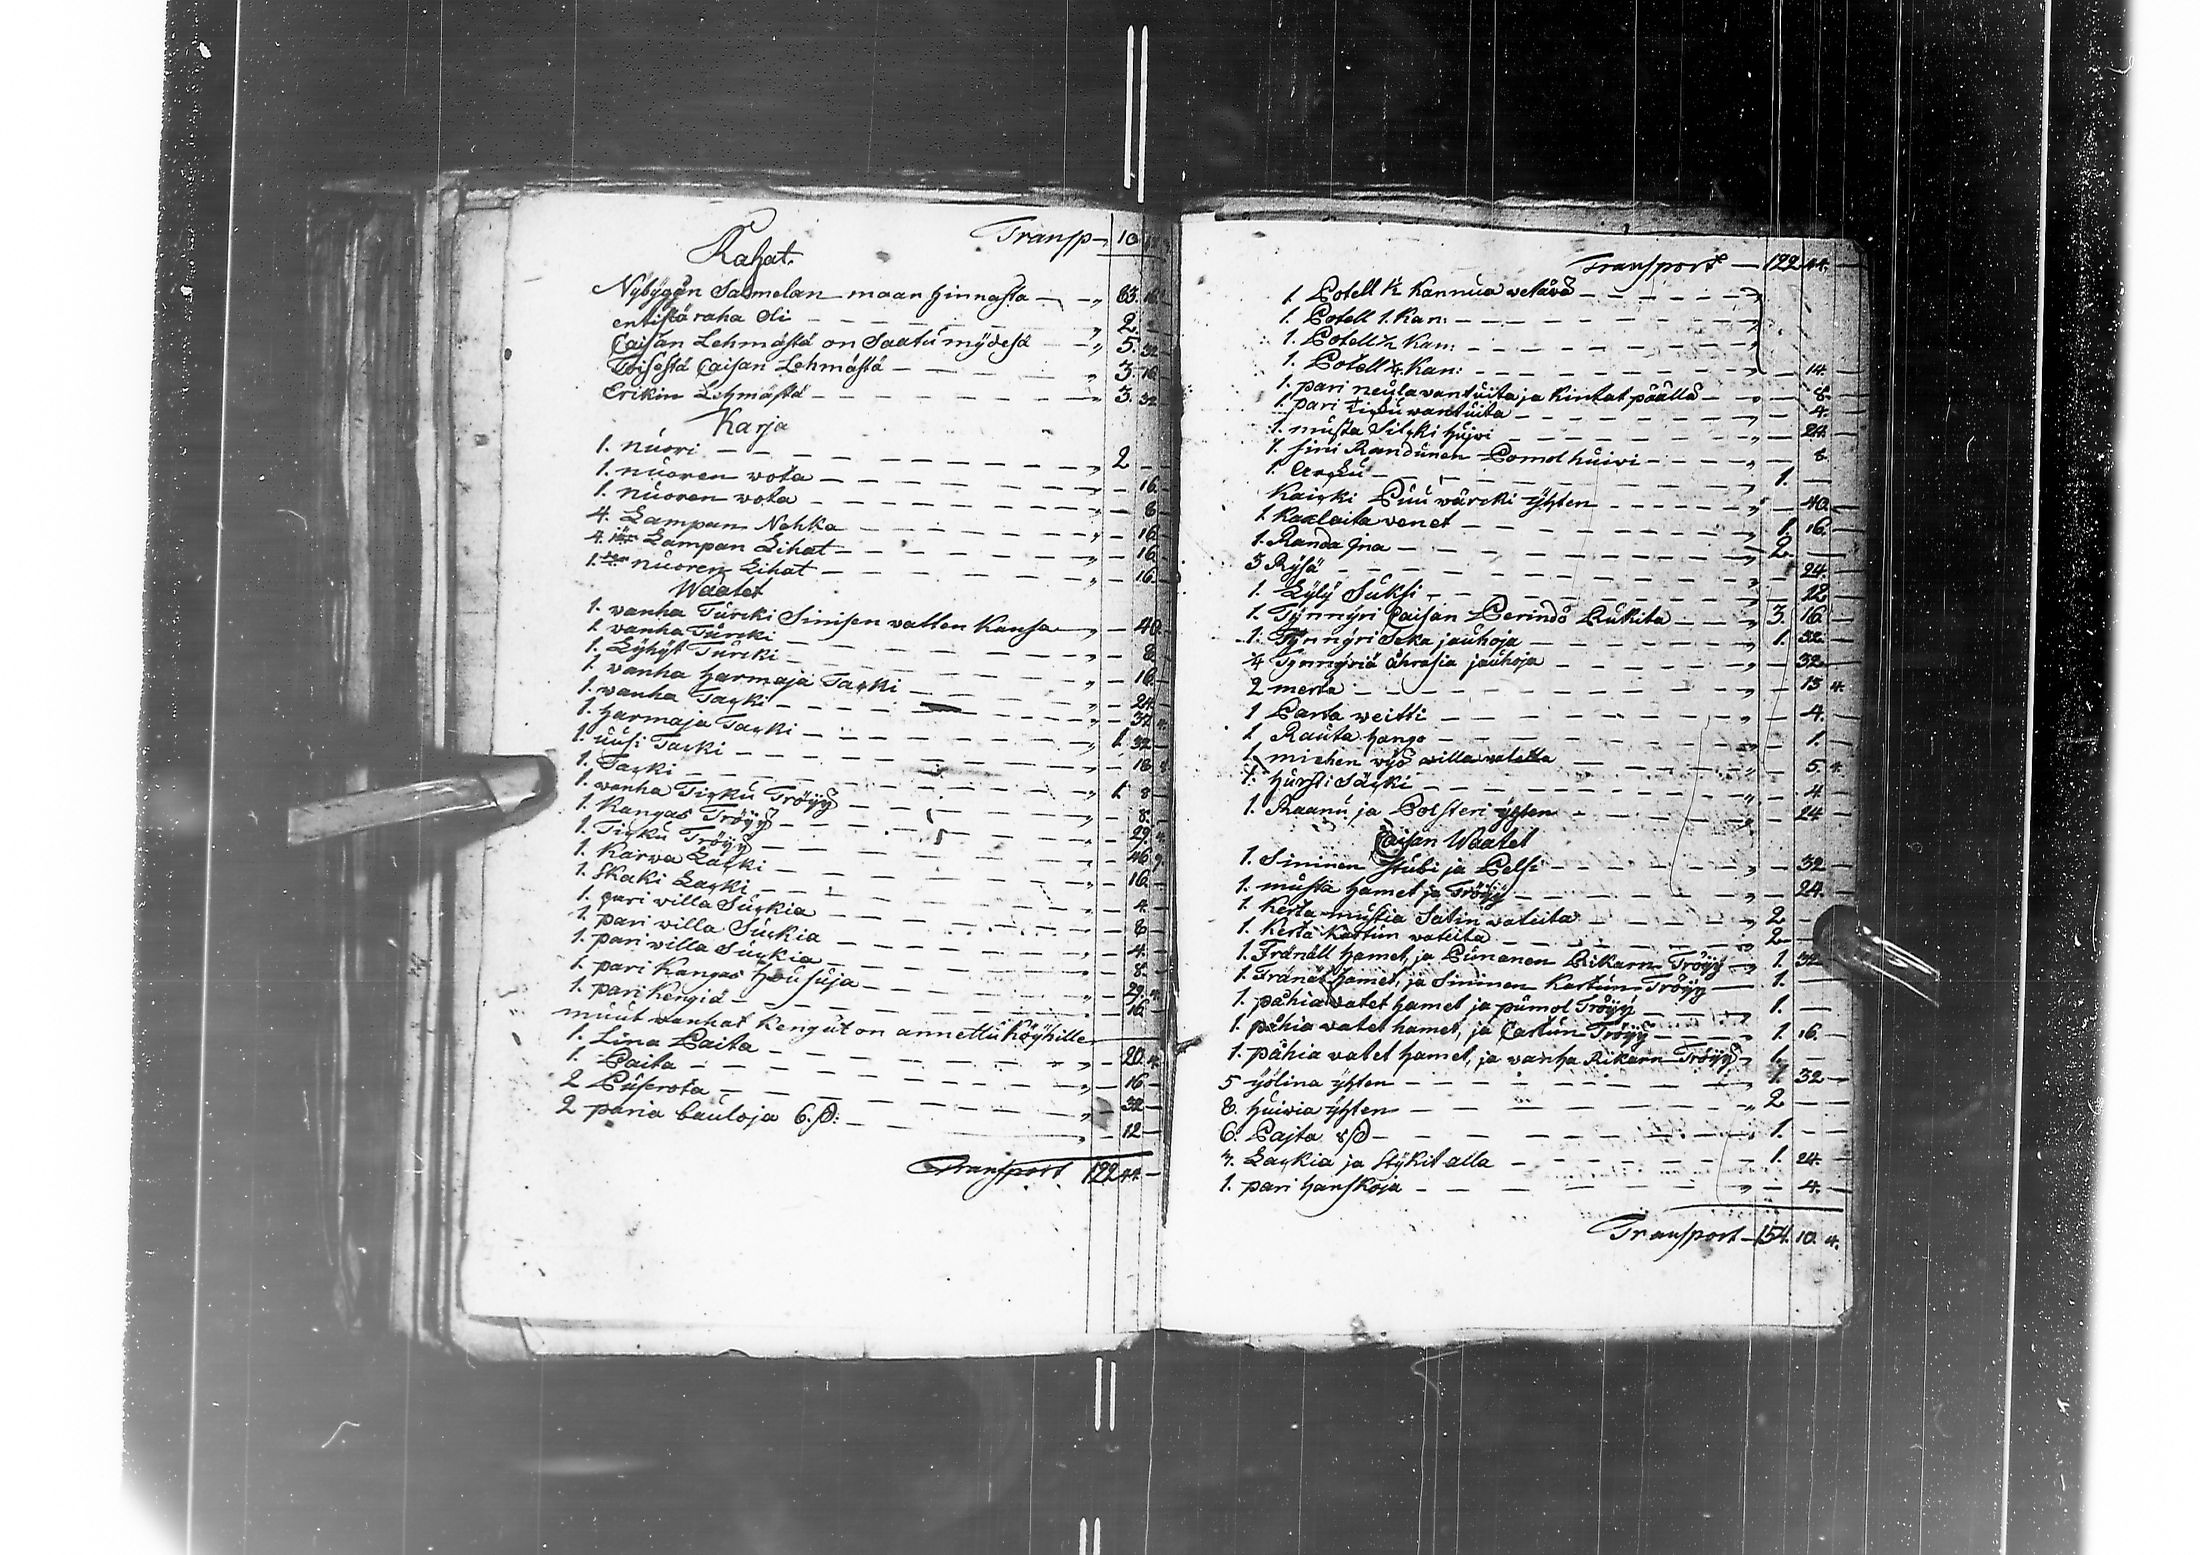 Transp 10
Rahat.
Nybygän Salmelan maan hinnasta — 83. 16.
entistä raha oli — 2.
Caisan Lehmästä on Saatu mydesä — 5. 32
Toisesta Caisan Lehmästä — 3. 16.
Erikin Lehmästä — 3. 32
Karja
1. nuori — 2
1. nuoren vota — 16.
1. nuoren vota — 8
4. Lampan Nahka — 16
4. Lampan Lihat — 16.
1. nuoren Lihat — 16.
Waatet
1. vanha Turcki Sinisen vatten Kansa — 40
1. vanha Turcki — 8
1. Lyhyt Turcki — 16.
1. vanha harmaja Tacki — 24.
1. vanha Tacki — 32 4.
1. harmaja Tacki — 1. 32
1. uusi Tacki — 16
1. Tacki — 1. 8
1. vanha Ticku Tröijy — 8.
1. Kangas Tröijy — 29. 4.
1. Ticku Tröijy — 46.
1. Karva Lacki — 16.
1. Skaki Lacki — 4.
1. pari villa Suckia — 8
1. pari villa Suckia — 4.
1. pari villa Suckia — 8.
1. pari Kangas Housuja — 29. 4.
1. pari Kengiä — 16.
muut vanhat Kengät on annettu Köyhille
1. Lina Paita — 20. 4.
1. Paita — 16
2 Püxrota — 32
2 paria bauloja 6. — 12
Transport 122 44.
Transport — 122 44.
1. Potell ½ Kannua vetävä
1. Potell 1. Kan:
1. Potell ½ Kan:
1. Potell ¼ Kan: — 14.
1. pari neula vantuita ja Kintat päällä — 8.
1. pari Ticku vantuita — 4.
1. musta Silcki hujvi — 24.
1. sini Randunen Pomol huivi — 8.
1. Arcku — 1.
Kaicki Puu värcki yhten — 40.
1. Kaxlaita venet — 1. 16.
1. Randa Jna — 2.
3 Rysä — 24.
1. Lyly Suksi — 22
1. Tynnyri Caisan Perindö Rukita — 3. 16.
1. Tynnyri Seka jauhoja — 1. 32.
¼ Tynnyriä ohrasia jauhoja — 32
2 merta — 13 4.
1 Parta veitti — 4.
1 Rauta hango — 1.
1. miehen vyö villa vatetta — 5. 4.
1. hursti Säcki — 4
1. Raanu ja Polsteri yhten — 24
Caisan Waatet
1. Sininen Stubi ja Pelsi — 32
1. musta hamet ja Tröijy — 24.
1. Kerta mustia Satin vateita — 2
1. Kerta Kartun vateita — 2.
1. Franäll hamet, ja Punanen Rikarn Tröijy — 1. 32
1. Franäl hamet, ja Sininen Kartun Tröijy — 1.
1. pähiä vatet hamet ja pumol Tröijy — 1.
1. pähiä vatet hamet, ja Cartun Tröijy — 1 16.
1. pähiä vatet hamet, ja vanha Rikarn Tröijy — 1.
5 yölina yhten — 1. 32
8. huivia yhten — 2
6. Pajta — 1.
7. Lackia ja Stykit alla — 1. 24.
1. pari hanskoja — 4.
Transport — 154. 10. 4.